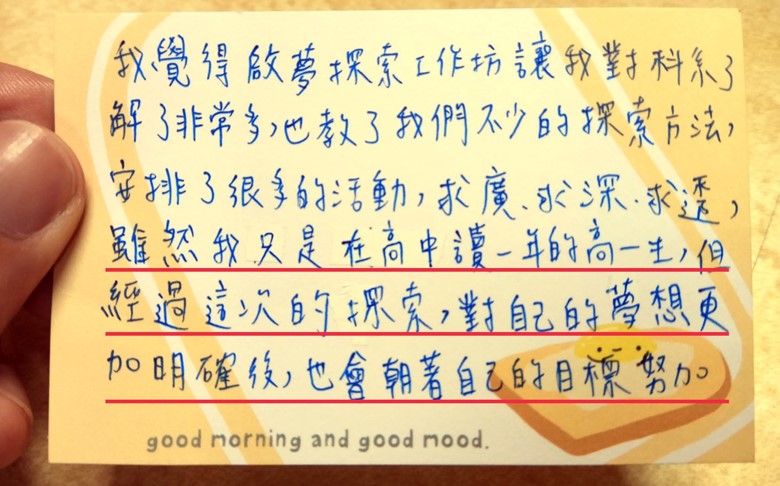 我覺得啟夢探索工作坊讓我對科系了
解了非常多,也教了我們不少的探索方法,
安排了很多的活動,求廣、求深、求透,
雖然我只是在高中讀一年的高一生,但
經過這次的探索,對自己的夢想更
加明確後,也會朝著自己的目標努力
good morning and good mood.